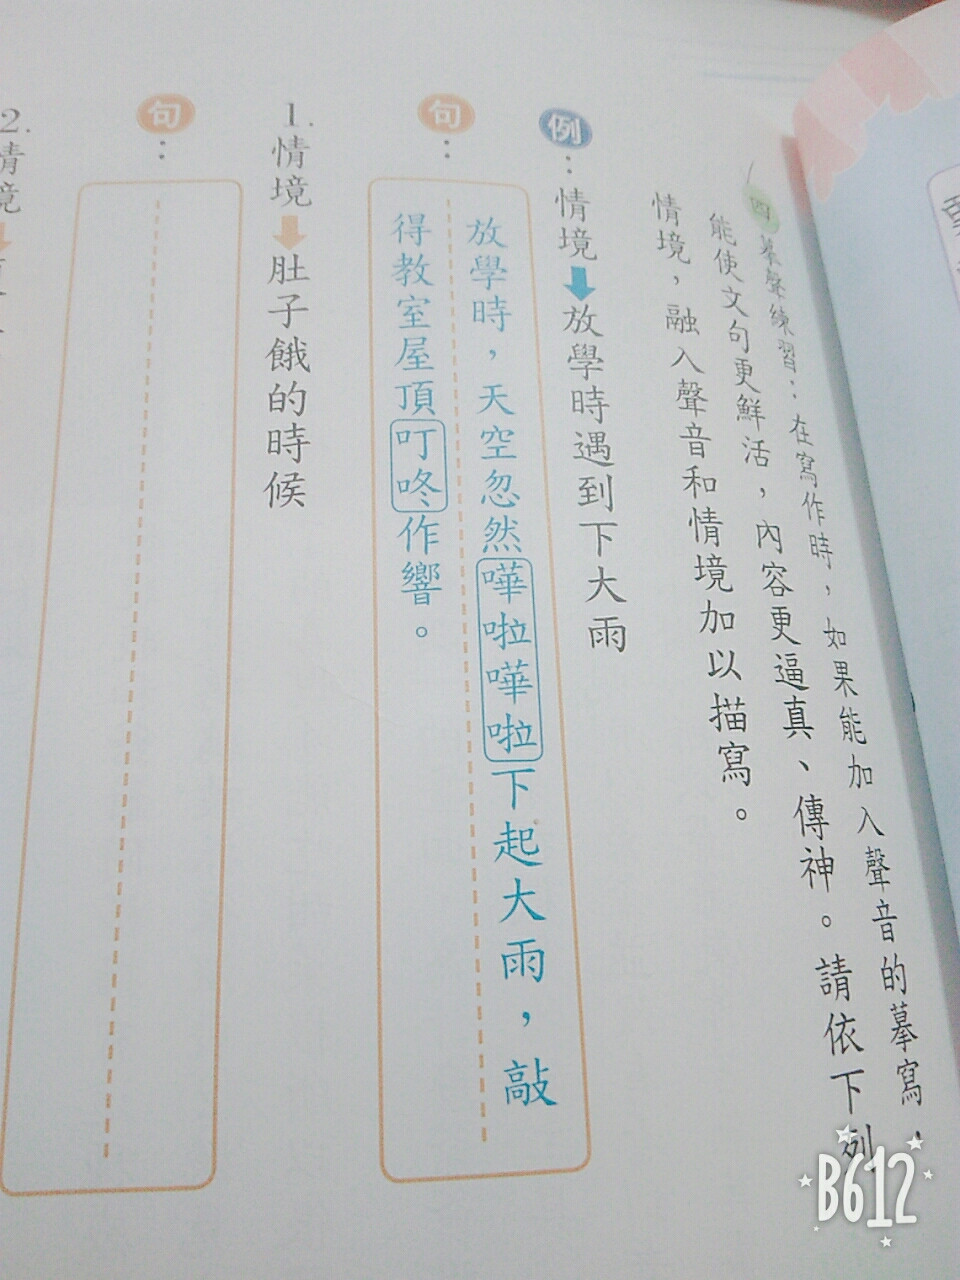 四 摹聲練習：在寫作時，如果能加入聲音的摹寫，
能使文句更鮮活，內容更逼真、傳神。請依下列
情境，融入聲音和情境加以描寫。
例：情境➡放學時遇到下大雨
句：
放學時，天空忽然嘩啦嘩啦下起大雨，敲
得教室屋頂叮咚作響。
1.情境➡肚子餓的時候
句：
2.情境
B612